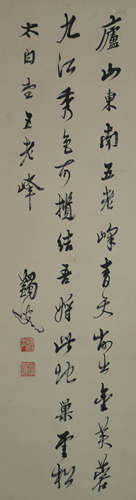 廬山東南五老峰青天削出金芙蓉
九江秀色可攬結吾將此地巢雲松
太白五老峰
蠲叟